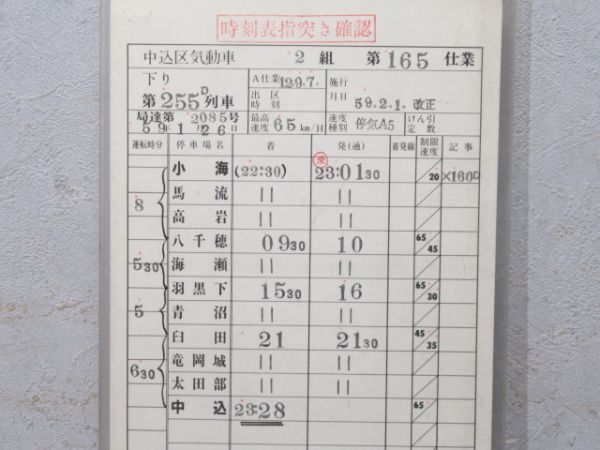 時刻表指突き確認
中込区気動車 2 組 第 165 仕業
下り A仕業 129.7. 施行
第 255D 列車 出区時刻 月日 59.2.1. 改正
局達第 2085号 59年1月26日 最高速度 65 km/H 速度種別 停気A5 けん引定数
運転時分 停車場名 着 発(通) 着発線 制限速度 記事
小海 (22:30) 乗 23:01 30 20 ×160D
馬流 〃 〃
8
高岩 〃 〃
八千穂 09 30 10 65/45
5 30 海瀬 〃 〃
羽黒下 15 30 16 65/30
5 青沼 〃 〃
臼田 21 21 30 45/35
6 30 竜岡城 〃 〃
太田部 〃 〃
中込 23:28 65